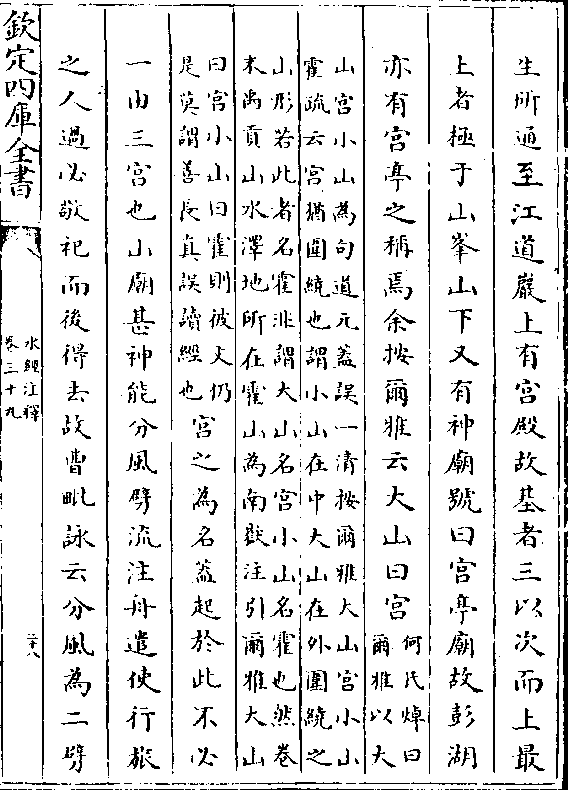 生所通至江道巖上有宮殿故基者三以次而上最
上者極于山峯山下又有神廟號曰宮亭廟故彭湖
亦有宮亭之稱焉余按爾雅云大山曰宮
何氏焯曰
爾雅以大
山宮小山為句道元蓋誤一清按爾雅大山宮小山
霍疏云宮猶圍繞也謂小山在中大山在外圍繞之
山形若此者名霍非謂大山名宮小山名霍也然卷
末禹貢山水澤地所在霍山為南嶽注引爾雅大山
曰宮小山曰霍則彼文仍
是莫謂善長真誤讀經也
宮之為名蓋起於此不必
一由三宮也山廟甚神能分風劈流注舟遣使行旅
之人過必敬祀而後得去故曹毗詠云分風為二劈
欽定四庫全書
水經注釋
卷三十九
二十八